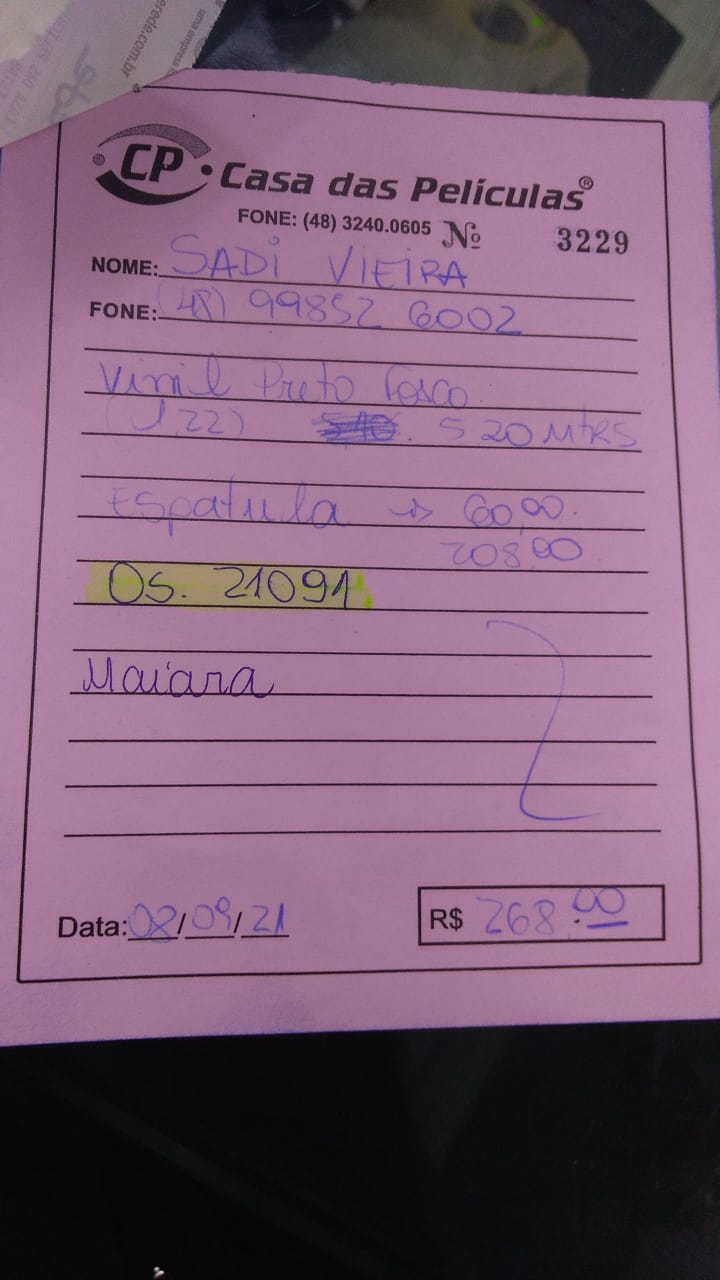 erede.com.br
uma empresa
CP Casa das Películas®
FONE: (48) 3240.0605 Nº 3229
NOME: SADI VIEIRA
FONE: (48) 99852 6002
Vinil Preto Fosco.
(1,22) 5 20 Mtrs
Espatula → 60,00.
208,00
Os. 21091
Maiara
Data: 08/09/21 R$ 268.00